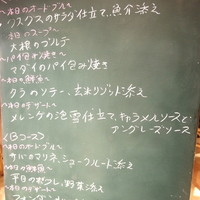 〜本日のオードブル〜
クスクスのサラダ仕立て、魚介添え
〜本日のスープ〜
大根のブルテ
〜パイ包み焼き〜
マダイのパイ包み焼き
〜本日の鮮魚〜
クラのソテー、玄米リゾット添え
〜本日のデザート〜
メレンゲの泡雪仕立て、キャラメルソースと
アングレーズソース
〈Bコース〉
〜本日のオードブル〜
サバのマリネ、シュークルート添え
〜鮮魚〜
本日の
野菜添え
〜本日のデザート〜
フォンダン